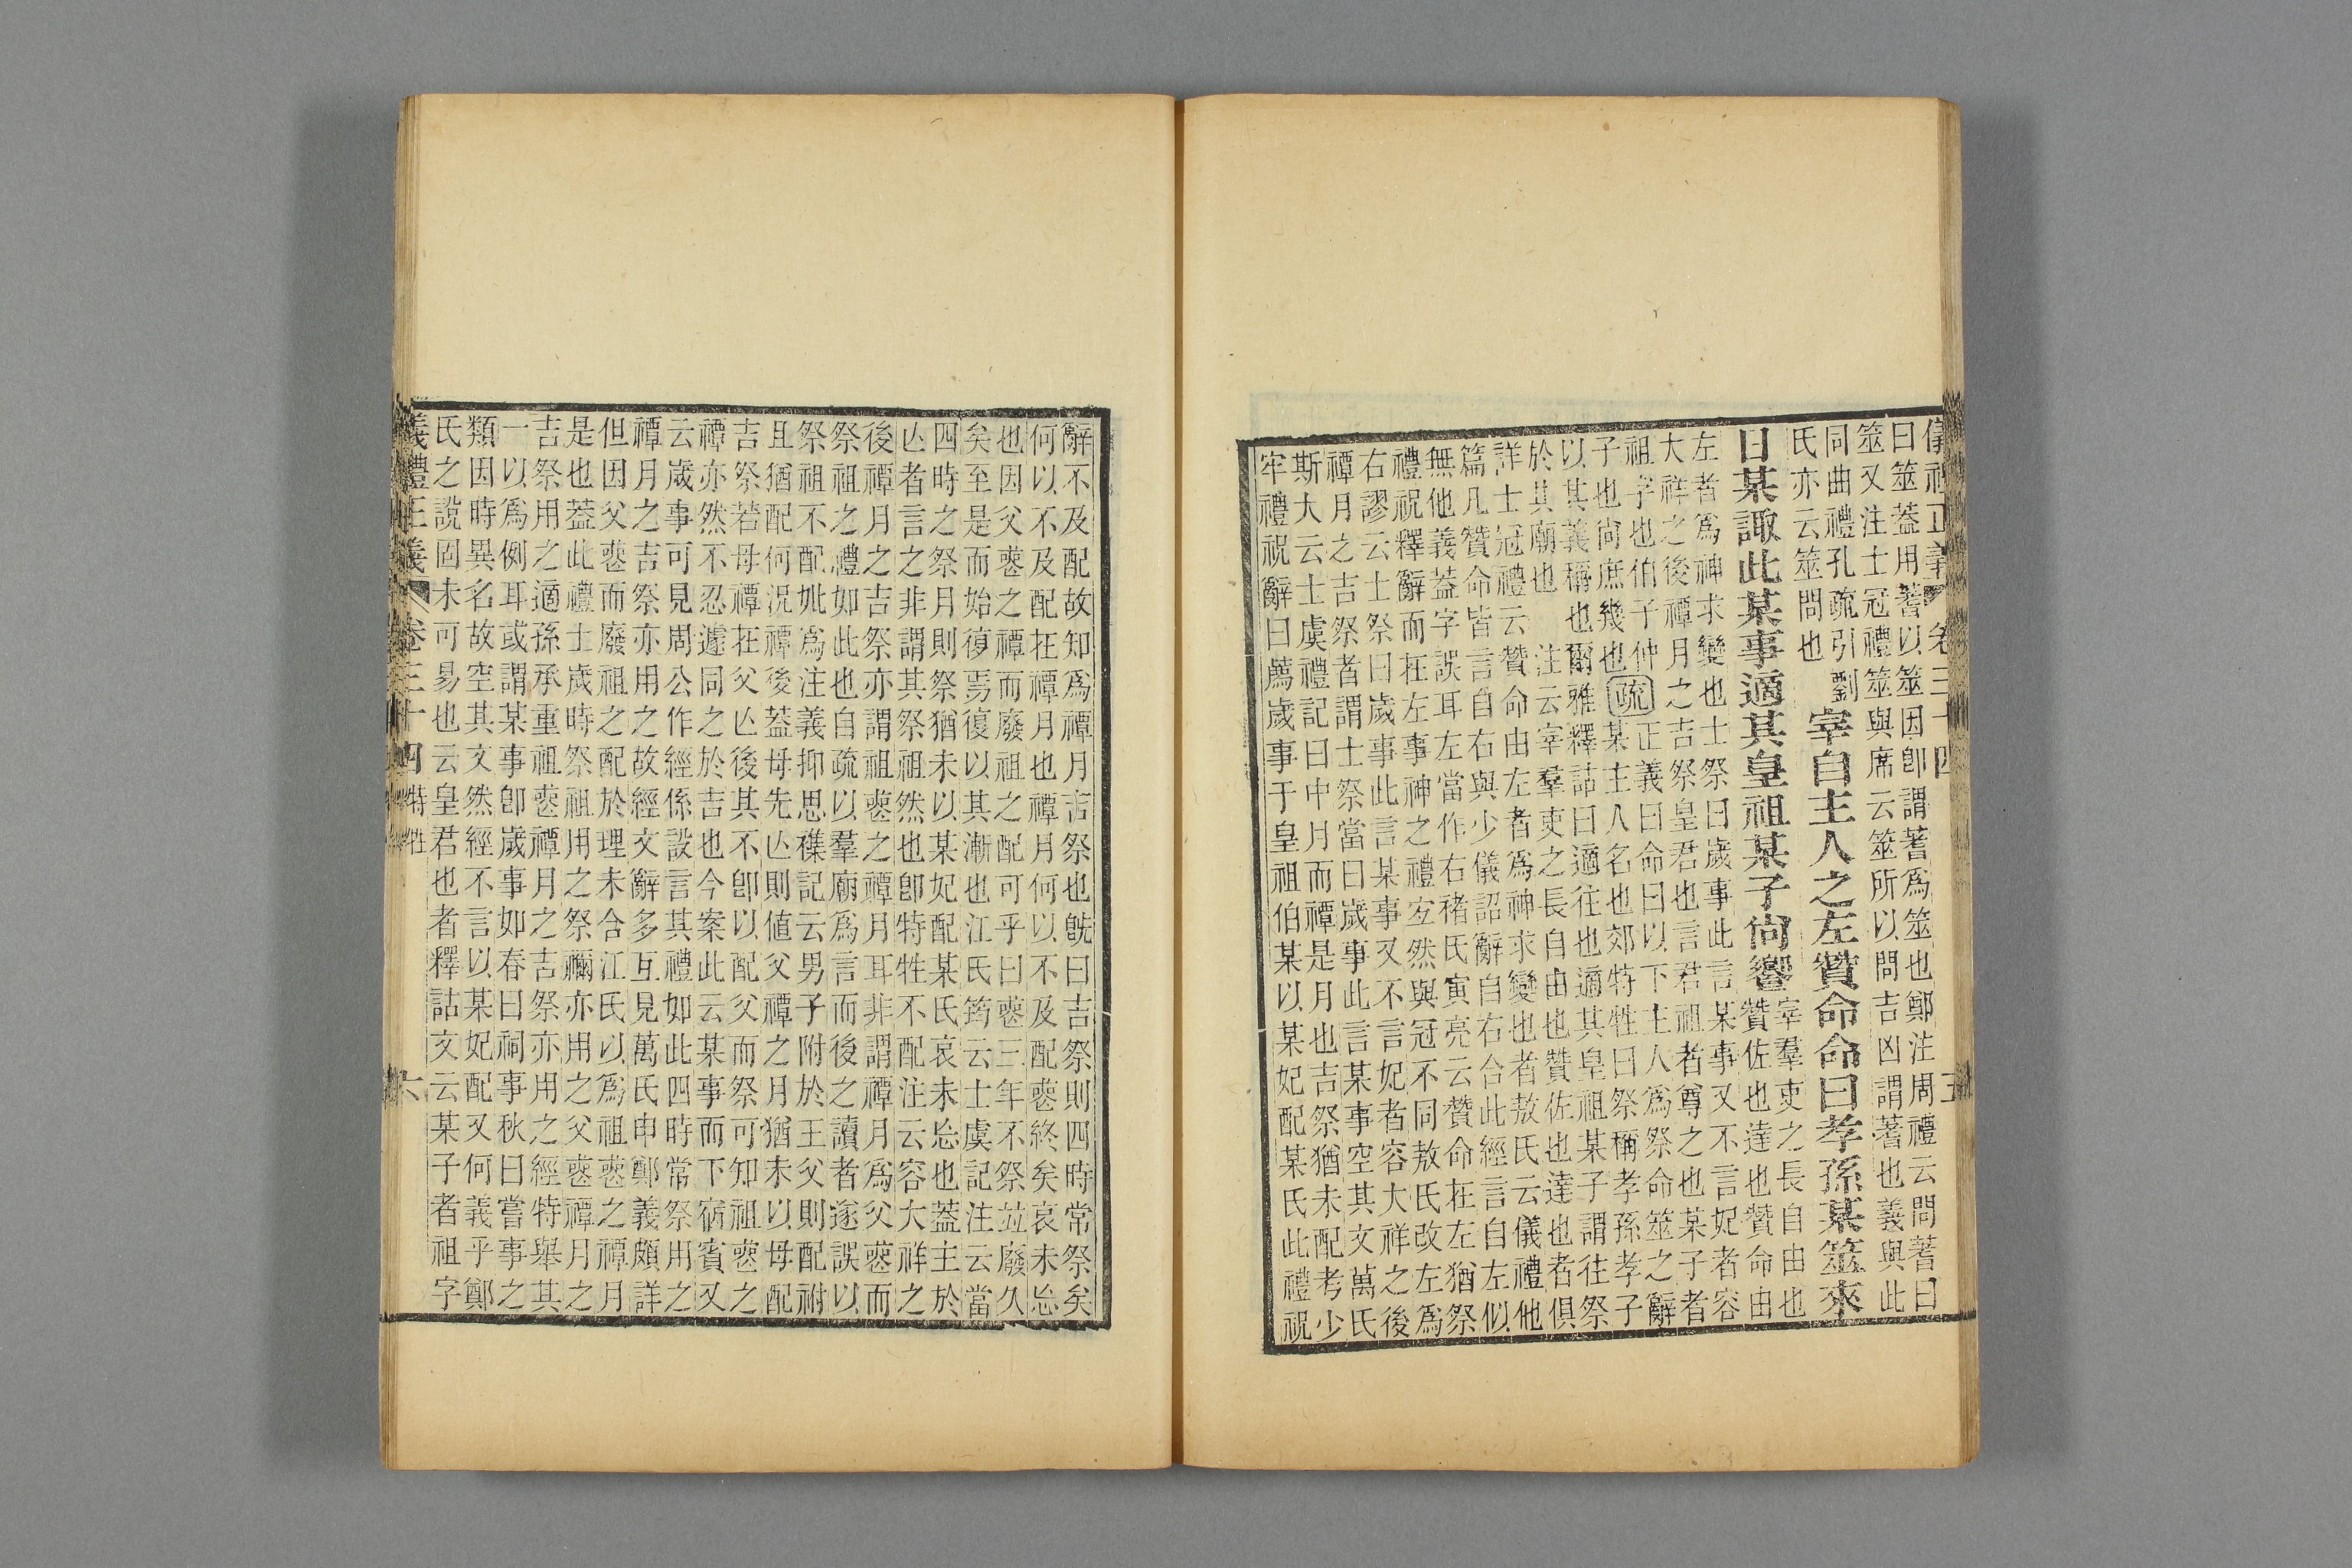 儀禮正義 卷三十四 五
曰筮葢用蓍以筮因卽謂蓍爲筮也鄭注周禮云問蓍曰
筮又注士冠禮筮與席云筮所以問吉凶謂蓍也義與此
同曲禮孔疏引劉
氏亦云筮問也
宰自主人之左贊命命曰孝孫某筮來
日某諏此某事適其皇祖某子尙饗
宰羣吏之長自由也
贊佐也達也贊命由
左者爲神求變也士祭曰歲事此言某事又不言妃者容
大祥之後禫月之吉祭皇君也言君祖者尊之也某子者
祖字也伯子仲
子也尙庶幾也
疏
正義曰命曰以下主人爲祭命筮之辭
某主人名也郊特牲曰祭稱孝孫孝子
以其義稱也爾雅釋詁曰適往也適其皇祖某子謂往祭
於其廟也 注云宰羣吏之長自由也贊佐也達也者俱
詳士冠禮云贊命由左者爲神求變也者敖氏云儀禮他
篇凡贊命皆言自右與少儀詔辭自右合此經言自左似
無他義葢字誤耳左當作右褚氏寅亮云贊命在左猶祭
禮祝釋辭而在左事神之禮宐然與冠不同敖氏改左爲
右謬云士祭曰歲事此言某事又不言妃者容大祥之後
禫月之吉祭者謂士祭當曰歲事此言某事空其文萬氏
斯大云士虞禮記曰中月而禫是月也吉祭猶未配考少
牢禮祝辭曰薦歲事于皇祖伯某以某妃配某氏此禮祝
辭不及配故知爲禫月吉祭也旣曰吉祭則四時常祭矣
何以不及配在禫月也禫月何以不及配喪終矣哀未忘
也因父喪之禫而廢祖之配可乎曰喪三年不祭竝廢久
矣至是而始復焉復以其漸也江氏筠云士虞記注云當
四時之祭月則祭猶未以某妃配某氏哀未忘也葢主於
亾者言之非謂其祭祖然也卽特牲不配注云容大祥之
後禫月之吉祭亦謂祖喪之禫月耳非謂禫月爲父喪而
祭祖之禮如此也自疏以羣廟爲言而後之讀者遂誤以
祭祖不配妣爲注義抑思襍記云男子附於王父則配祔
且猶配何況禫後葢母先亾則値父禫之月猶未以母配
吉祭若母禫在父亾後其不卽以配父而祭可知祖喪之
禫亦然不忍遽同之於吉也今案此云某事而下宿賓又
云歲事可見周公作經係設言其禮如此四時常祭用之
禫月之吉祭亦用之故經文辭多互見萬氏申鄭義頗詳
但因父喪而廢祖之配於理未合江氏以爲祖喪之禫月
是也葢此禮士歲時祭祖用之祭禰亦用之父喪禫月之
吉祭用之適孫承重祖喪禫月之吉祭亦用之經特舉其
一以爲例耳或謂某事卽歲事如春曰祠事秋曰嘗事之
類因時異名故空其文然經不言以某妃配又何義乎鄭
氏之說固未可易也云皇君也者釋詁文云某子者祖字
儀禮正義 卷三十四 特牲 六